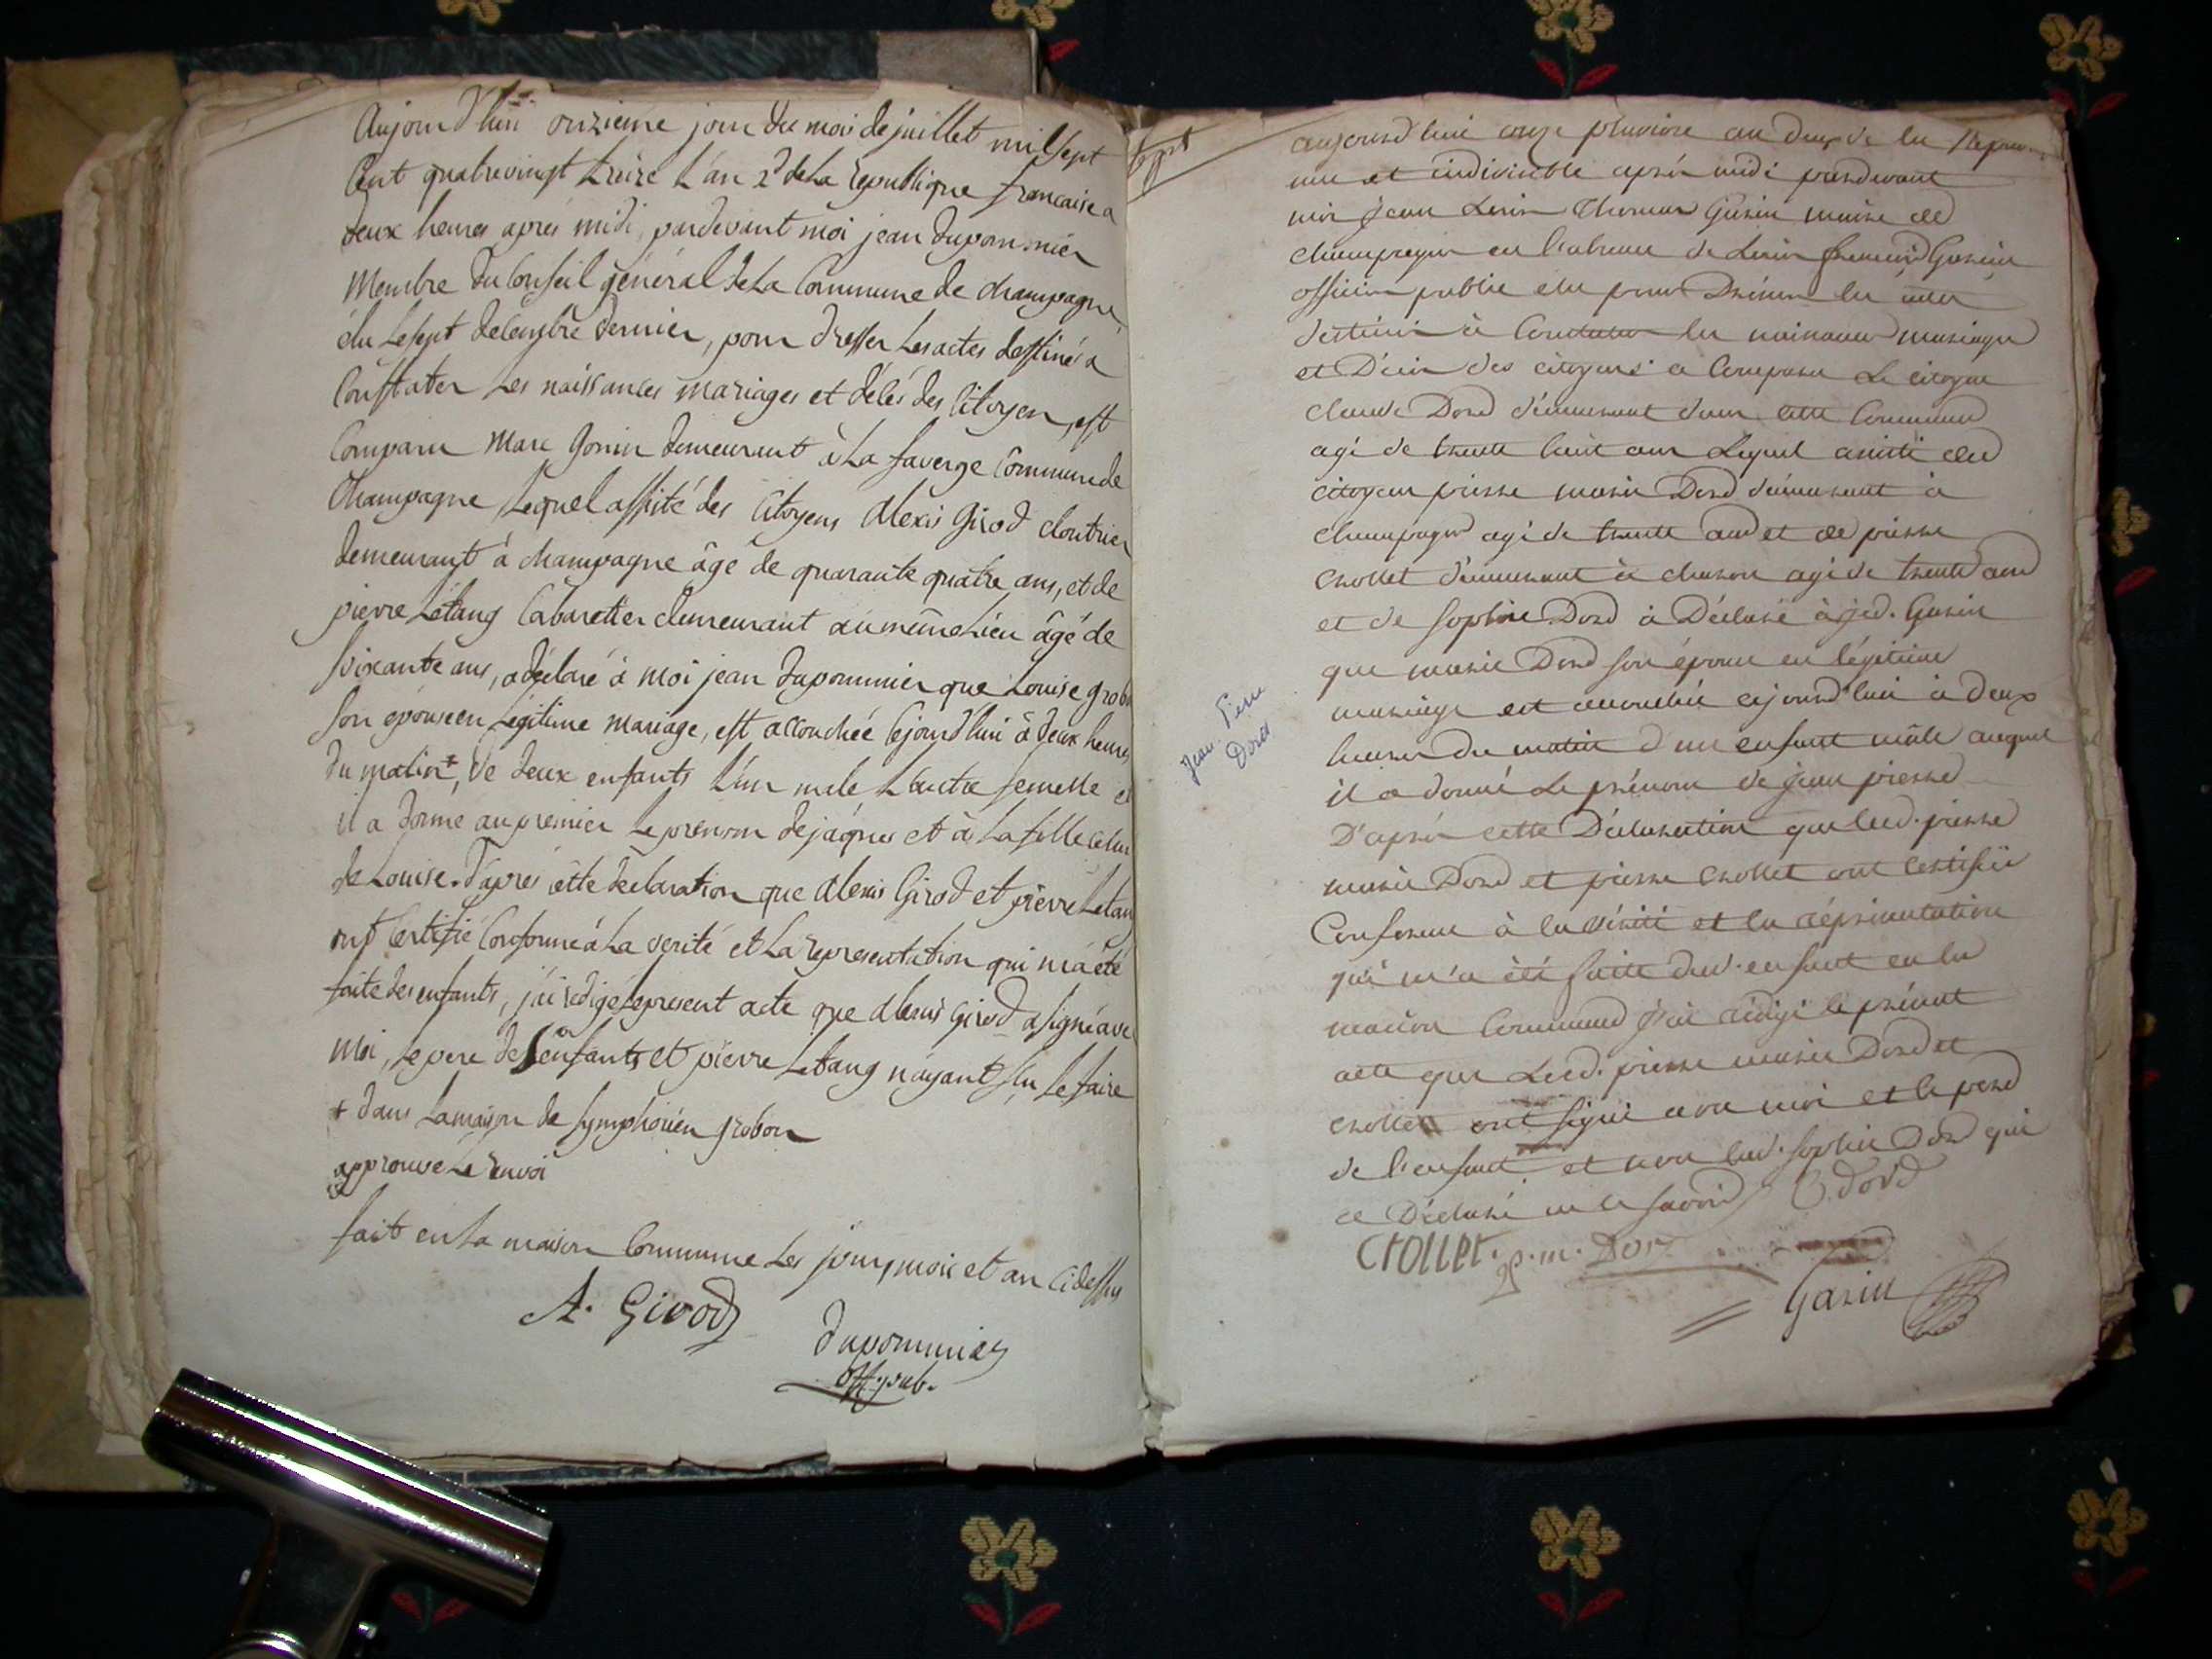 Aujourd'hui onzieme jour du mois de juillet mil sept
Cent quatrevingt treize L'an 2e de La republique francaise a
deux heures après midi, pardevant moi jean dupommier
Membre du Conseil général de La Commune de champagne
élu Le sept decembre dernier, pour dresser Les actes destinés a
Constater Les naissances mariages et décés des Citoyen, est
Comparu Marc Gonin demeurant à La faverge Commune de
Champagne Lequel assisté des Citoyens Alexis Girod cloutrier
demeurant à champagne âge de quarante quatre ans, et de
pierre Létang Cabaretier demeurant au même Lieu âgé de
soixante ans, a déclaré à moi jean dupommier que Louise grobon
son epouse en Légitime mariage, est accouchée Cejourd'hui à deux heures
du matin +, de deux enfants L'un male L'autre femelle et
il a donné au premier Le prenom de jaques et à La fille celui
de Louise. D'après cette declaration que Alexis Girod et pierre Letang
ont Certifié Conforme à La verité et La representation qui m'a été
faite des enfants, j'ai redigé Le present acte que Alexis Girod a signé avec
Moi, Le pere des enfants et pierre Letang n'ayant sçu Le faire
+ dans La maison de symphorien grobon
approuve Le renvoi
fait en La maison Commune Les jour, mois et an Ci dessus
A. Girod
dupommier
Off. pub.
aujourd'hui onze pluviose an deux de la Repu
une et indivisible après midi pardevant
moi Jean Louis Thomas Garin maire de
champagne en l'absence de Louis Garin
officier public élu pour Dresser les actes
destinés à Constater les naissances mariages
et Décès des citoyens a Comparu Le citoyen
claude Dord demeurant dans cette Commune
agé de trente huit ans Lequel assisté du
citoyen pierre marie Dord demeurant à
champagne agé de trente ans et de pierre
Crollet demeurant à agé de trente ans
et de sophie Dord a Déclaré à jed. Garin
que marie Dord son épouse en légitime
mariage est accouchée cejourd'hui à deux
heures du matin d'un enfant mâle auquel
il a donné Le prénom de Jean pierre
D'après cette Déclaration que led. pierre
marie Dord et pierre Crollet ont certifié
Conforme à la vérité et la représentation
qui m'a été faite dud. enfant en la
maison Commune j'ai rédigé le présent
acte que Led. pierre marie Dord et
Crollet ont signé avec moi et le pere
de l'enfant et non lad. sophie Dord qui
a Déclaré ne le savoir C. dord
Crollet. p. m. Dord
Garin
Jean Pierre
Dord